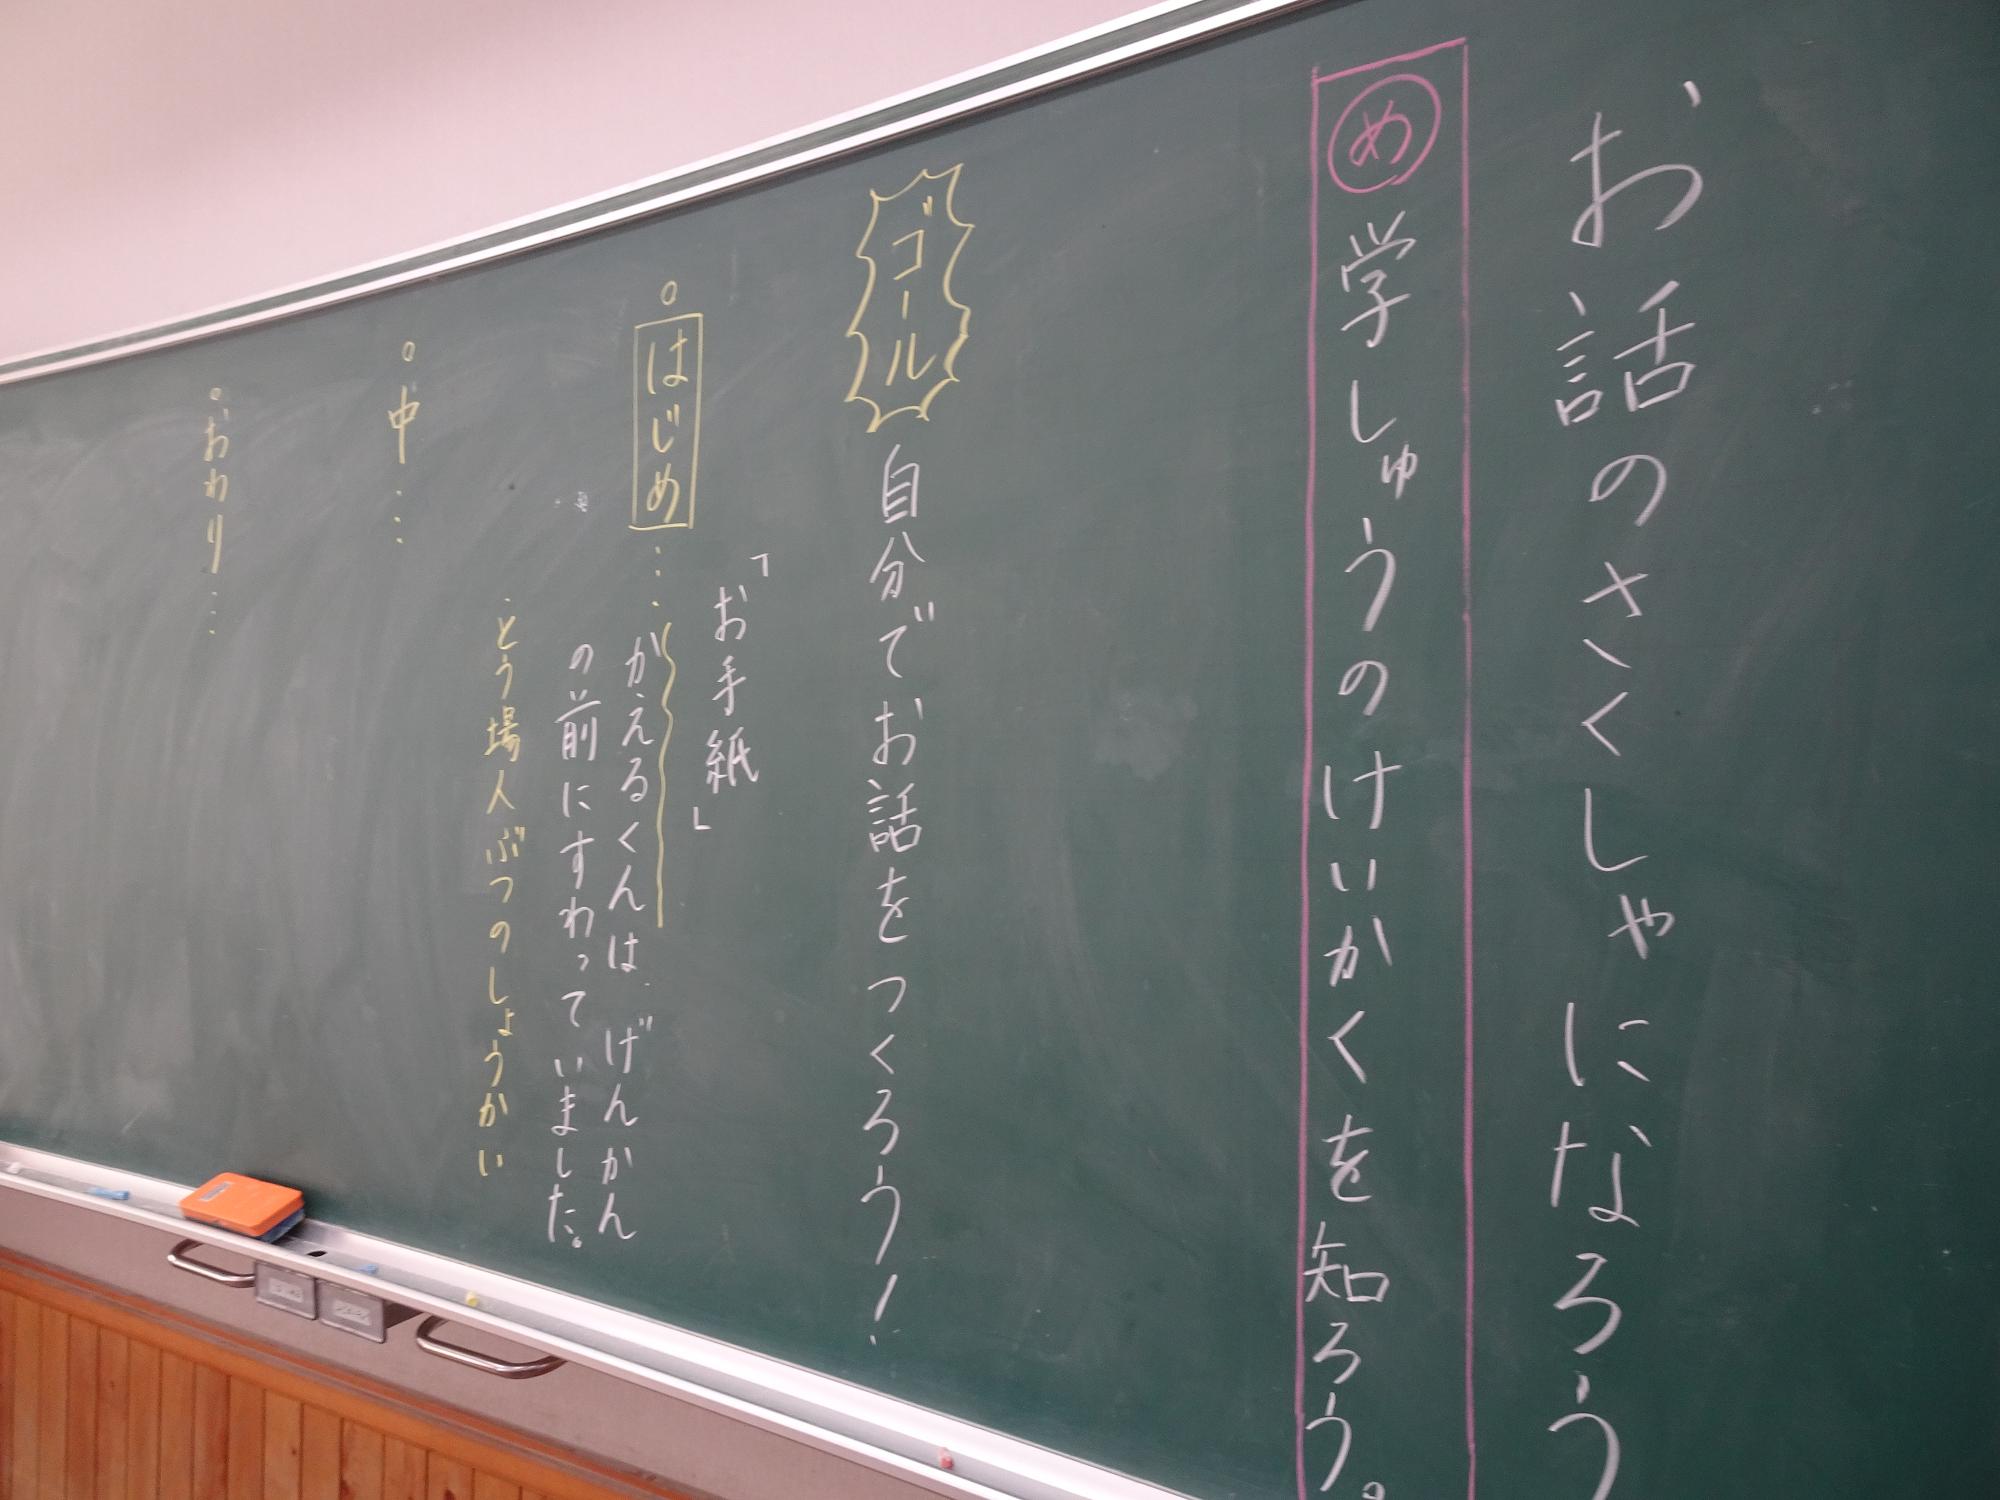 お話のさくしゃになろう
め 学しゅうのけいかくを知ろう。
ゴール 自分でお話をつくろう!
「お手紙」
。はじめ…… かえるくんは、げんかん
の前にすわっていました。
・とう場人ぶつのしょうかい
。中……
。おわり……